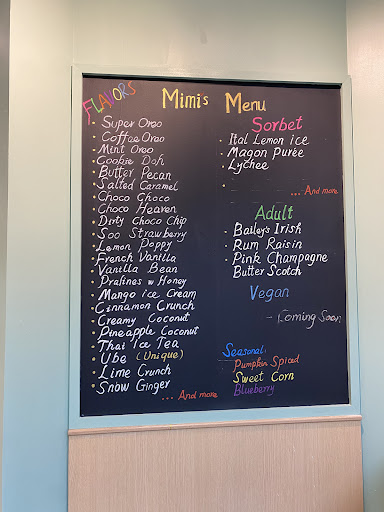 Mimis Menu
FLAVORS
Super Oreo
Coffee Oreo
Mint Oreo
Cookie Doh
Butter Pecan
Salted Caramel
Choco Choco
Choco Heaven
Dirty Choco Chip
Soo Strawberry
Lemon Poppy
French Vanilla
Vanilla Bean
Pralines w Honey
Mango ice Cream
Cinnamon Crunch
Creamy Coconut
Pineapple Coconut
Thai Ice Tea
Ube (Unique)
Lime Crunch
Snow Ginger
... And more
Sorbet
Ital Lemon ice
Magon Purèe
Lychee
... And more
Adult
Baileys Irish
Rum Raisin
Pink Champagne
Butter Scotch
Vegan
- Coming Soon.
Seasonal
Pumpkin Spiced
Sweet Corn
Blueberry